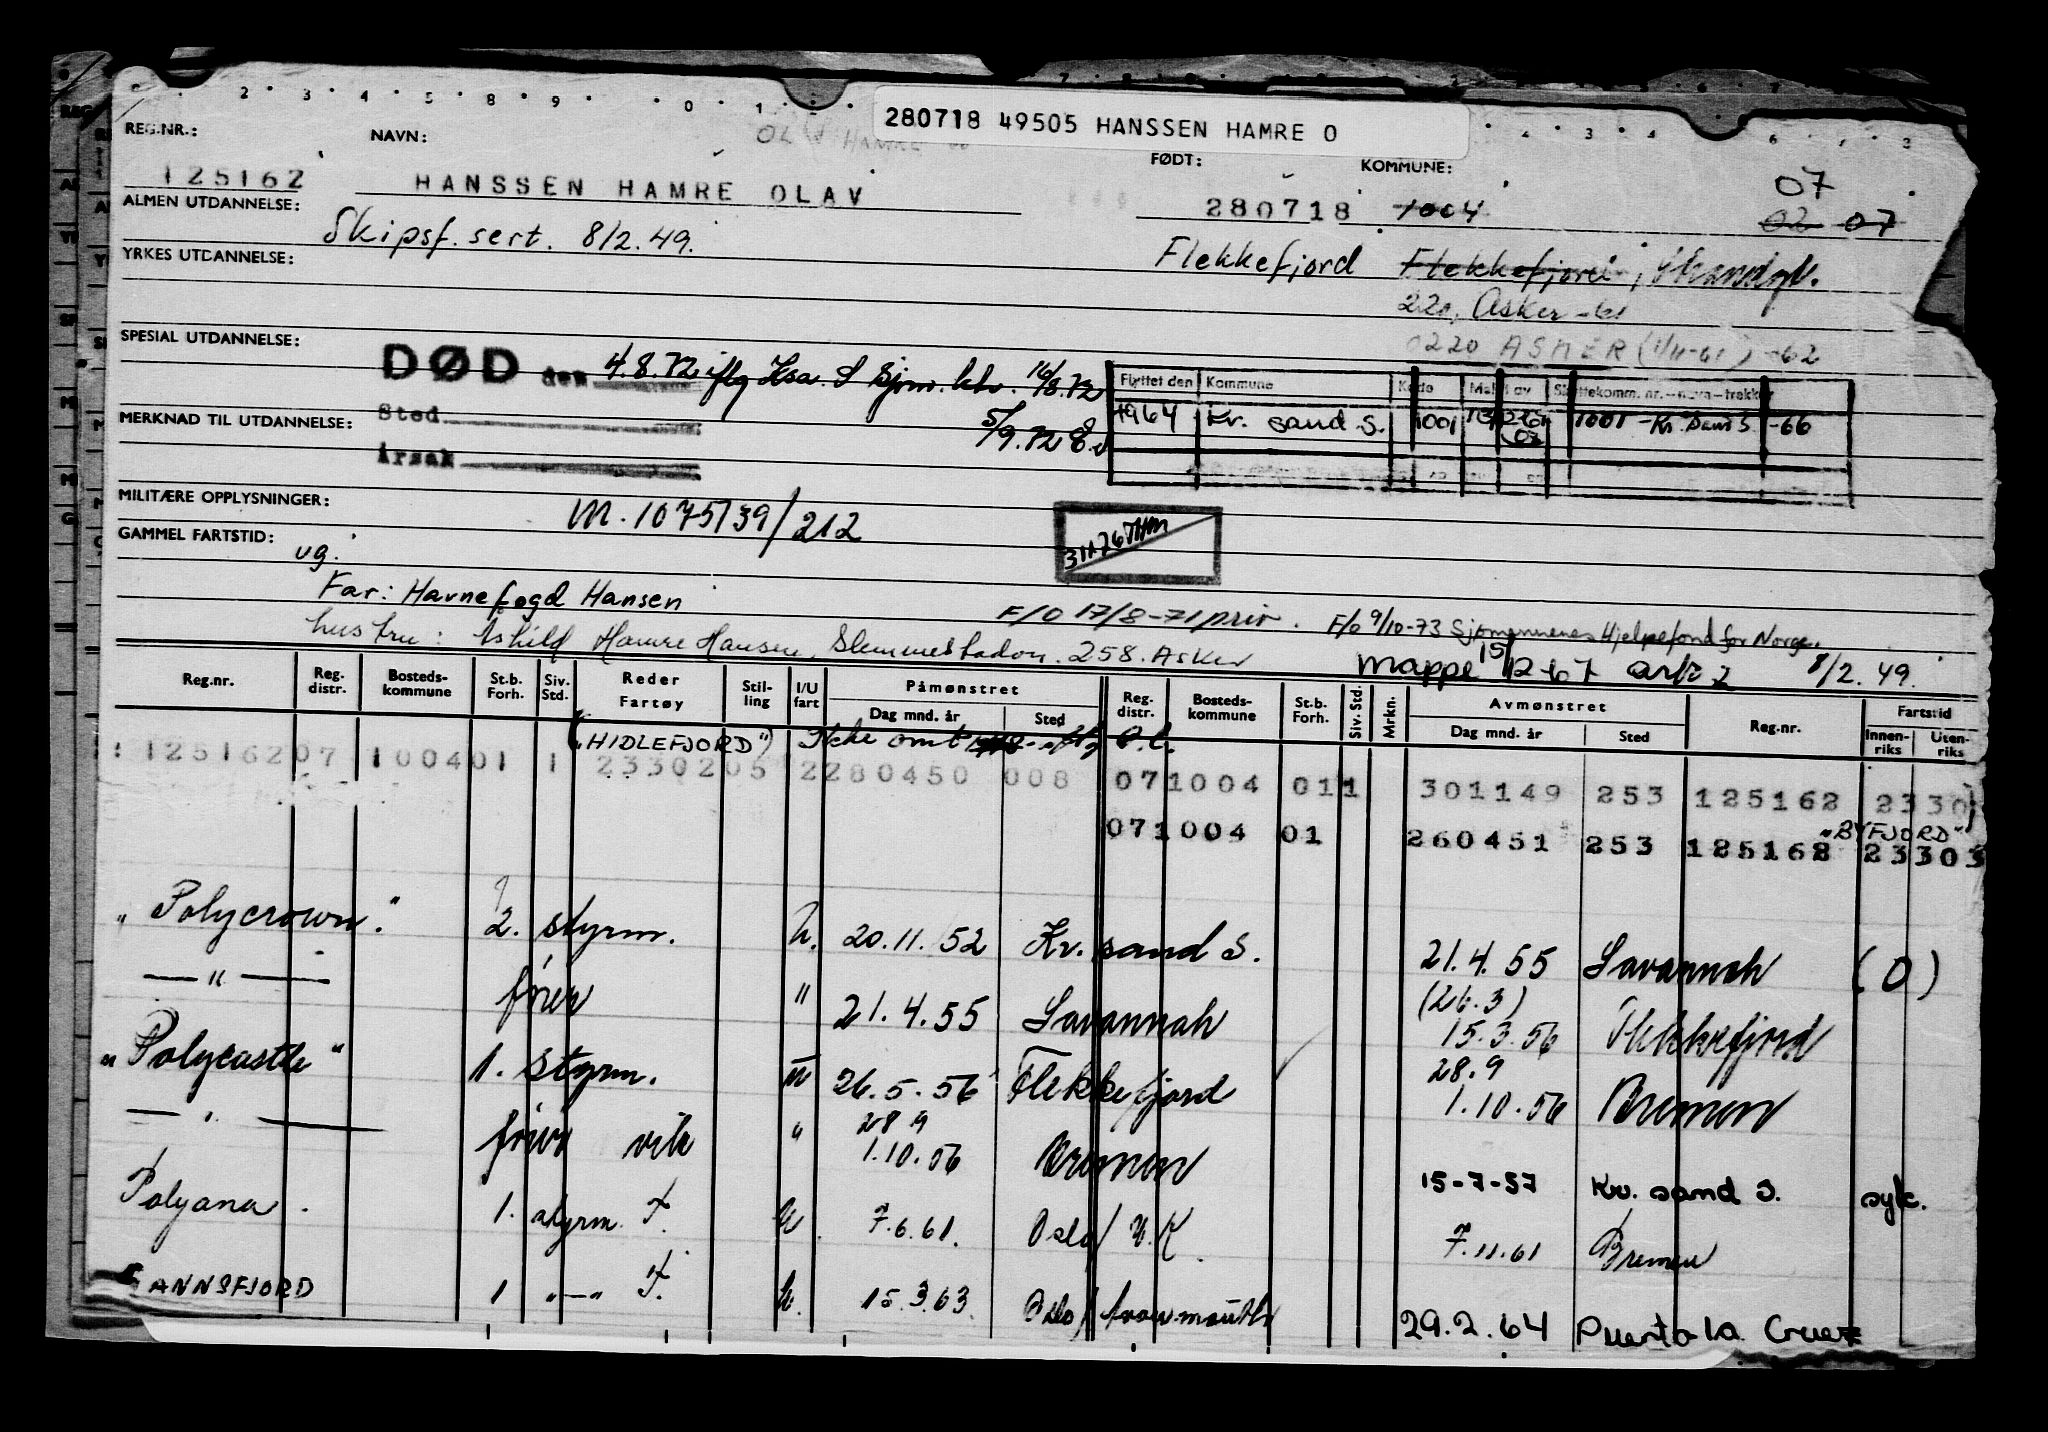 280718 49505 HANSSEN HAMRE O
REG.NR.: NAVN: FØDT: KOMMUNE: 07
125162 HANSSEN HAMRE OLAV 280718 1004 02 07
ALMEN UTDANNELSE: Skipsf. sert. 8/2.49. Flekkefjord Flekkefjord, Strandgt.
YRKES UTDANNELSE: 220, Asker -61
0220 ASKER (1/11-61) -62
SPESIAL UTDANNELSE: DØD den 4.8.72 iflg 16/8.72
Flyttet den Kommune Kode Meld av Skattekomm. nr. - navn - trekker
MERKNAD TIL UTDANNELSE: Sted 5/9.72
1964 Kr. sand S. 1001 1001 - Kr. Sand S. -66
Årsak
MILITÆRE OPPLYSNINGER: M. 1075/39/212
GAMMEL FARTSTID: ug.
Far: Havnefogd Hansen F/O 17/8-71 priv. F/O 9/10-73 Sjømennenes Hjelpefond for Norge.
hustru: Åshild Hamre Hansen, Slemmestadvn. 258. Asker Mappe 15/12-67 ark 2 8/2.49.
Reg.nr. Reg. distr. Bosteds- kommune St.b. Forh. Siv. Std. Reder Fartøy Stil- ling I/U fart Påmønstret Dag mnd. år Sted Reg. distr. Bosteds- kommune St.b. Forh. Siv. Std. Mrkn. Avmønstret Dag mnd. år Sted Reg.nr. Fartstid Innen- riks Uten- riks
("HIDLEFJORD") Ikke omt
125162 07 1004 01 1 2330205 2 280450 008 07 1004 01 1 301149 253 125162 2330
"BYFJORD"
07 1004 01 260451 253 125162 23303
"Polycrown." 2. styrm. U. 20.11.52 Kr. sand S. 21.4.55 Savannah (0)
— " — fører " 21.4.55 Savannah (26.3) 15.3.56 Flekkefjord
"Polycastle" 1. styrm. U 26.5.56 Flekkefjord 28.9 1.10.56 Bremen
— " — fører vik " 28.9 1.10.56 Bremen 15-7-57 Kr. sand S. syk.
Polyana. 1. styrm. F. U. 7.6.61. Oslo/U.K. 7.11.61 Bremen
GANNSFJORD 1 "—" F. U. 15.3.63. Oslo/Avonmouth 29.2.64 Puerto la Cruz